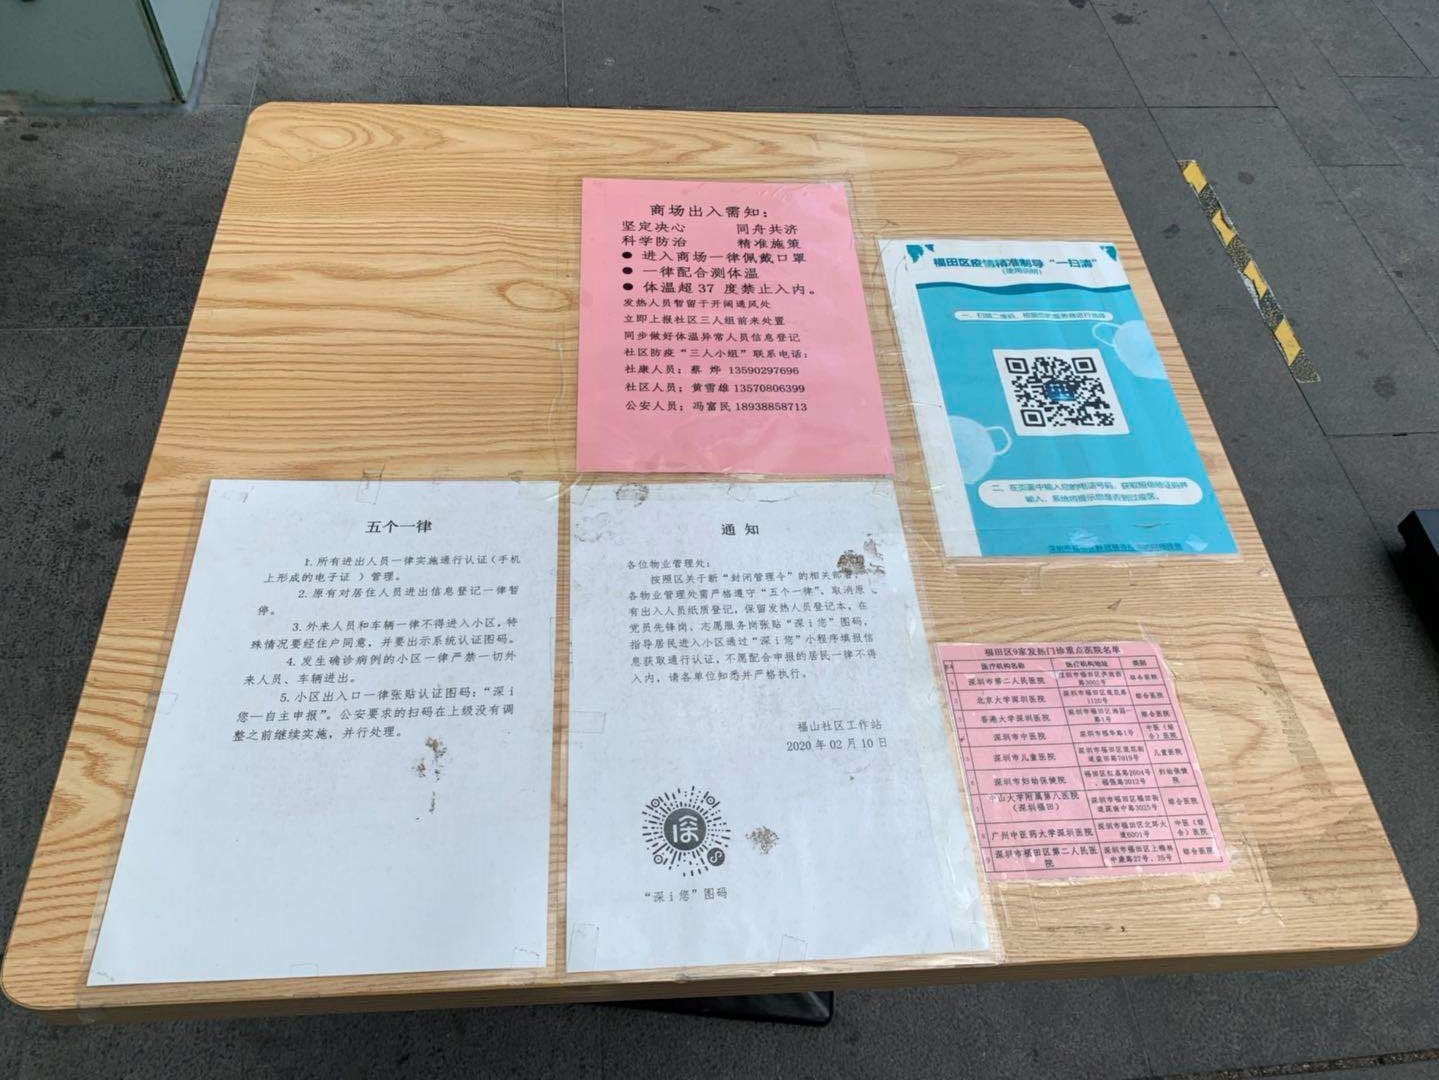 商场出入需知：
坚定决心 同舟共济
科学防治 精准施策
● 进入商场一律佩戴口罩
● 一律配合测体温
● 体温超 37 度禁止入内。
发热人员暂留于开阔通风处
立即上报社区三人组前来处置
同步做好体温异常人员信息登记
社区防疫“三人小组”联系电话：
社康人员：蔡 烨 13590297696
社区人员：黄雪雄 13570806399
公安人员：冯富民 18938858713
福田区疫情精准制导“一扫清”
（使用说明）
一、扫描二维码，根据您的服务商进行选择
二、在页面中输入您的电话号码，获取短信验证码并
输入，系统将提示您是否到过疫区。
五个一律
1.所有进出人员一律实施通行认证（手机
上形成的电子证 ）管理。
2. 原有对居住人员进出信息登记一律暂
停。
3. 外来人员和车辆一律不得进入小区，特
殊情况要经住户同意，并要出示系统认证图码。
4. 发生确诊病例的小区一律严禁一切外
来人员、车辆进出。
5. 小区出入口一律张贴认证图码：“深 i
您—自主申报”。公安要求的扫码在上级没有调
整之前继续实施，并行处理。
通 知
各位物业管理处：
按照区关于新“封闭管理令”的相关部署，
各物业管理处需严格遵守“五个一律”，取消原
有出入人员纸质登记，保留发热人员登记本，在
党员先锋岗、志愿服务岗张贴“深 i 您”图码，
指导居民进入小区通过“深 i 您”小程序填报信
息获取通行认证，不愿配合申报的居民一律不得
入内，请各单位知悉并严格执行。
福山社区工作站
2020 年 02 月 10 日
深
“深 i 您”图码
福田区9家发热门诊重点医院名单
医疗机构名称 医疗机构地址 类别
深圳市第二人民医院 深圳市福田区笋岗西路3002号 综合医院
北京大学深圳医院 深圳市福田区莲花路1120号 综合医院
香港大学深圳医院 深圳市福田区海园一路1号 综合医院
深圳市中医院 深圳市福华路1号 中医（综合）医院
深圳市儿童医院 深圳市福田区莲花街道益田路7019号 儿童医院
深圳市妇幼保健院 福田区红荔路2004号、福强路3012号 妇幼保健院
中山大学附属第八医院（深圳福田） 深圳市福田区福田街道深南中路3025号 综合医院
广州中医药大学深圳医院 深圳市福田区北环大道6001号 中医（综合）医院
深圳市福田区第二人民医院 深圳市福田区上梅林中康路27号、25号 综合医院